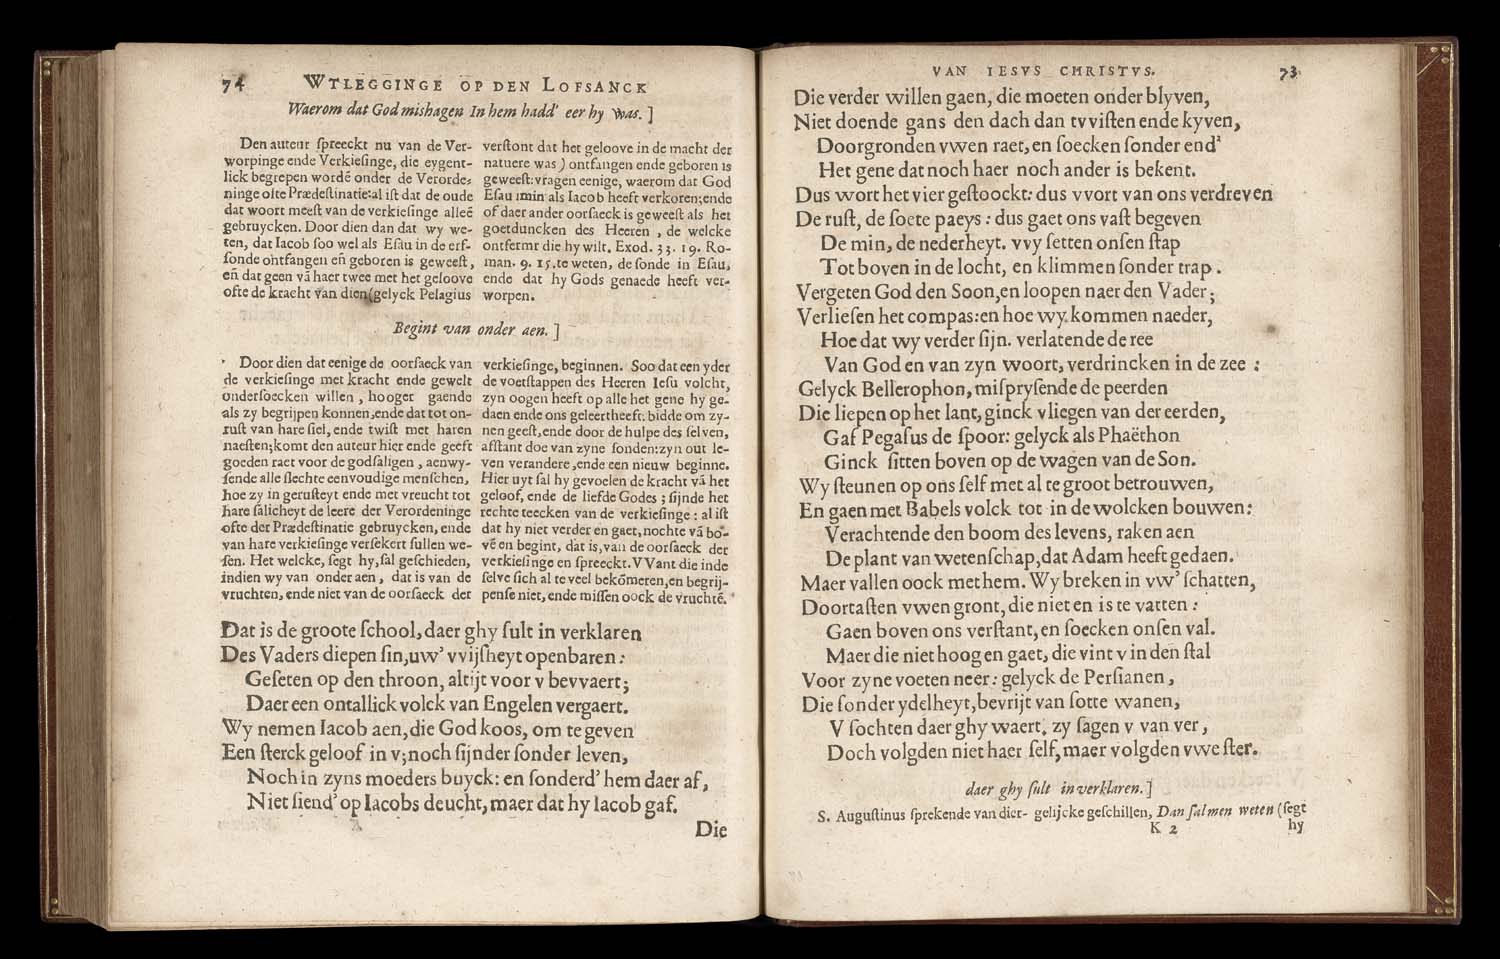 74 WTLEGGINGE OP DEN LOFSANCK
Waerom dat God mishagen In hem hadd' eer hy was. ]
Den auteur ſpreeckt nu van de Ver-
worpinge ende Verkieſinge, die eygent-
lick begrepen wordē onder de Verorde-
ninge ofte Prædeſtinatie: al iſt dat de oude
dat woort meeſt van de verkieſinge alleē
gebruycken. Door dien dan dat wy we-
ten, dat Iacob ſoo wel als Eſau in de erf-
ſonde ontfangen eñ geboren is geweeſt,
eñ dat geen vā haer twee met het geloove
ofte de kracht van dien (gelyck Pelagius
verſtont dat het geloove in de macht der
natuere was) ontfangen ende geboren is
geweeſt: vragen eenige, waerom dat God
Eſau min als Iacob heeft verkoren; ende
of daer ander oorſaeck is geweeſt als het
goetduncken des Heeren, de welcke
ontfermt die hy wilt. Exod. 33. 19. Ro-
man. 9. 15. te weten, de ſonde in Eſau,
ende dat hy Gods genaede heeft ver-
worpen.
Begint van onder aen. ]
Door dien dat eenige de oorſaeck van
de verkieſinge met kracht ende gewelt
onderſoecken willen, hooger gaende
als zy begrijpen konnen, ende dat tot on-
ruſt van hare ſiel, ende twiſt met haren
naeſten; komt den auteur hier ende geeft
goeden raet voor de godſaligen, aenwy-
ſende alle ſlechte eenvoudige menſchen,
hoe zy in geruſteyt ende met vreucht tot
hare ſalicheyt de leere der Verordeninge
ofte der Prædeſtinatie gebruycken, ende
van hare verkieſinge verſekert ſullen we-
ſen. Het welcke, ſegt hy, ſal geſchieden,
indien wy van onder aen, dat is van de
vruchten, ende niet van de oorſaeck der
verkieſinge, beginnen. Soo dat een yder
de voetſtappen des Heeren Ieſu volcht,
zyn oogen heeft op alle het gene hy ge-
daen ende ons geleert heeft: bidde om zy-
nen geeſt, ende door de hulpe des ſelven,
afſtant doe van zyne ſonden: zyn out le-
ven verandere, ende een nieuw beginne.
Hier uyt ſal hy gevoelen de kracht vā het
geloof, ende de liefde Godes; ſijnde het
rechte teecken van de verkieſinge: al iſt
dat hy niet verder en gaet, nochte vā bo-
vē en begint, dat is, van de oorſaeck der
verkieſinge en ſpreeckt. VVant die inde
ſelve ſich al te veel bekōmeren, en begrij-
penſe niet, ende miſſen oock de vruchtē.
Dat is de groote ſchool, daer ghy ſult in verklaren
Des Vaders diepen ſin, uw' vvijſheyt openbaren:
Geſeten op den throon, altijt voor v bevvaert;
Daer een ontallick volck van Engelen vergaert.
Wy nemen Iacob aen, die God koos, om te geven
Een ſterck geloof in v; noch ſijnder ſonder leven,
Noch in zyns moeders buyck: en ſonderd' hem daer af,
Niet ſiend' op Iacobs deucht, maer dat hy Iacob gaf.
Die
VAN IESVS CHRISTVS. 73
Die verder willen gaen, die moeten onder blyven,
Niet doende gans den dach dan tvviſten ende kyven,
Doorgronden vwen raet, en ſoecken ſonder end'
Het gene dat noch haer noch ander is bekent.
Dus wort het vier geſtoockt: dus vvort van ons verdreven
De ruſt, de ſoete paeys: dus gaet ons vaſt begeven
De min, de nederheyt. vvy ſetten onſen ſtap
Tot boven in de locht, en klimmen ſonder trap.
Vergeten God den Soon, en loopen naer den Vader;
Verlieſen het compas: en hoe wy kommen naeder,
Hoe dat wy verder ſijn. verlatende de ree
Van God en van zyn woort, verdrincken in de zee:
Gelyck Bellerophon, miſpryſende de peerden
Die liepen op het lant, ginck vliegen van der eerden,
Gaf Pegaſus de ſpoor: gelyck als Phaëthon
Ginck ſitten boven op de wagen van de Son.
Wy ſteunen op ons ſelf met al te groot betrouwen,
En gaen met Babels volck tot in de wolcken bouwen:
Verachtende den boom des levens, raken aen
De plant van wetenſchap, dat Adam heeft gedaen.
Maer vallen oock met hem. Wy breken in vw' ſchatten,
Doortaſten vwen gront, die niet en is te vatten:
Gaen boven ons verſtant, en ſoecken onſen val.
Maer die niet hoog en gaet, die vint v in den ſtal
Voor zyne voeten neer: gelyck de Perſianen,
Die ſonder ydelheyt, bevrijt van ſotte wanen,
V ſochten daer ghy waert. zy ſagen v van ver,
Doch volgden niet haer ſelf, maer volgden vwe ſter.
daer ghy ſult in verklaren. ]
S. Auguſtinus ſprekende van dier- gelijcke geſchillen, Dan ſalmen weten (ſegt
K 2 hy